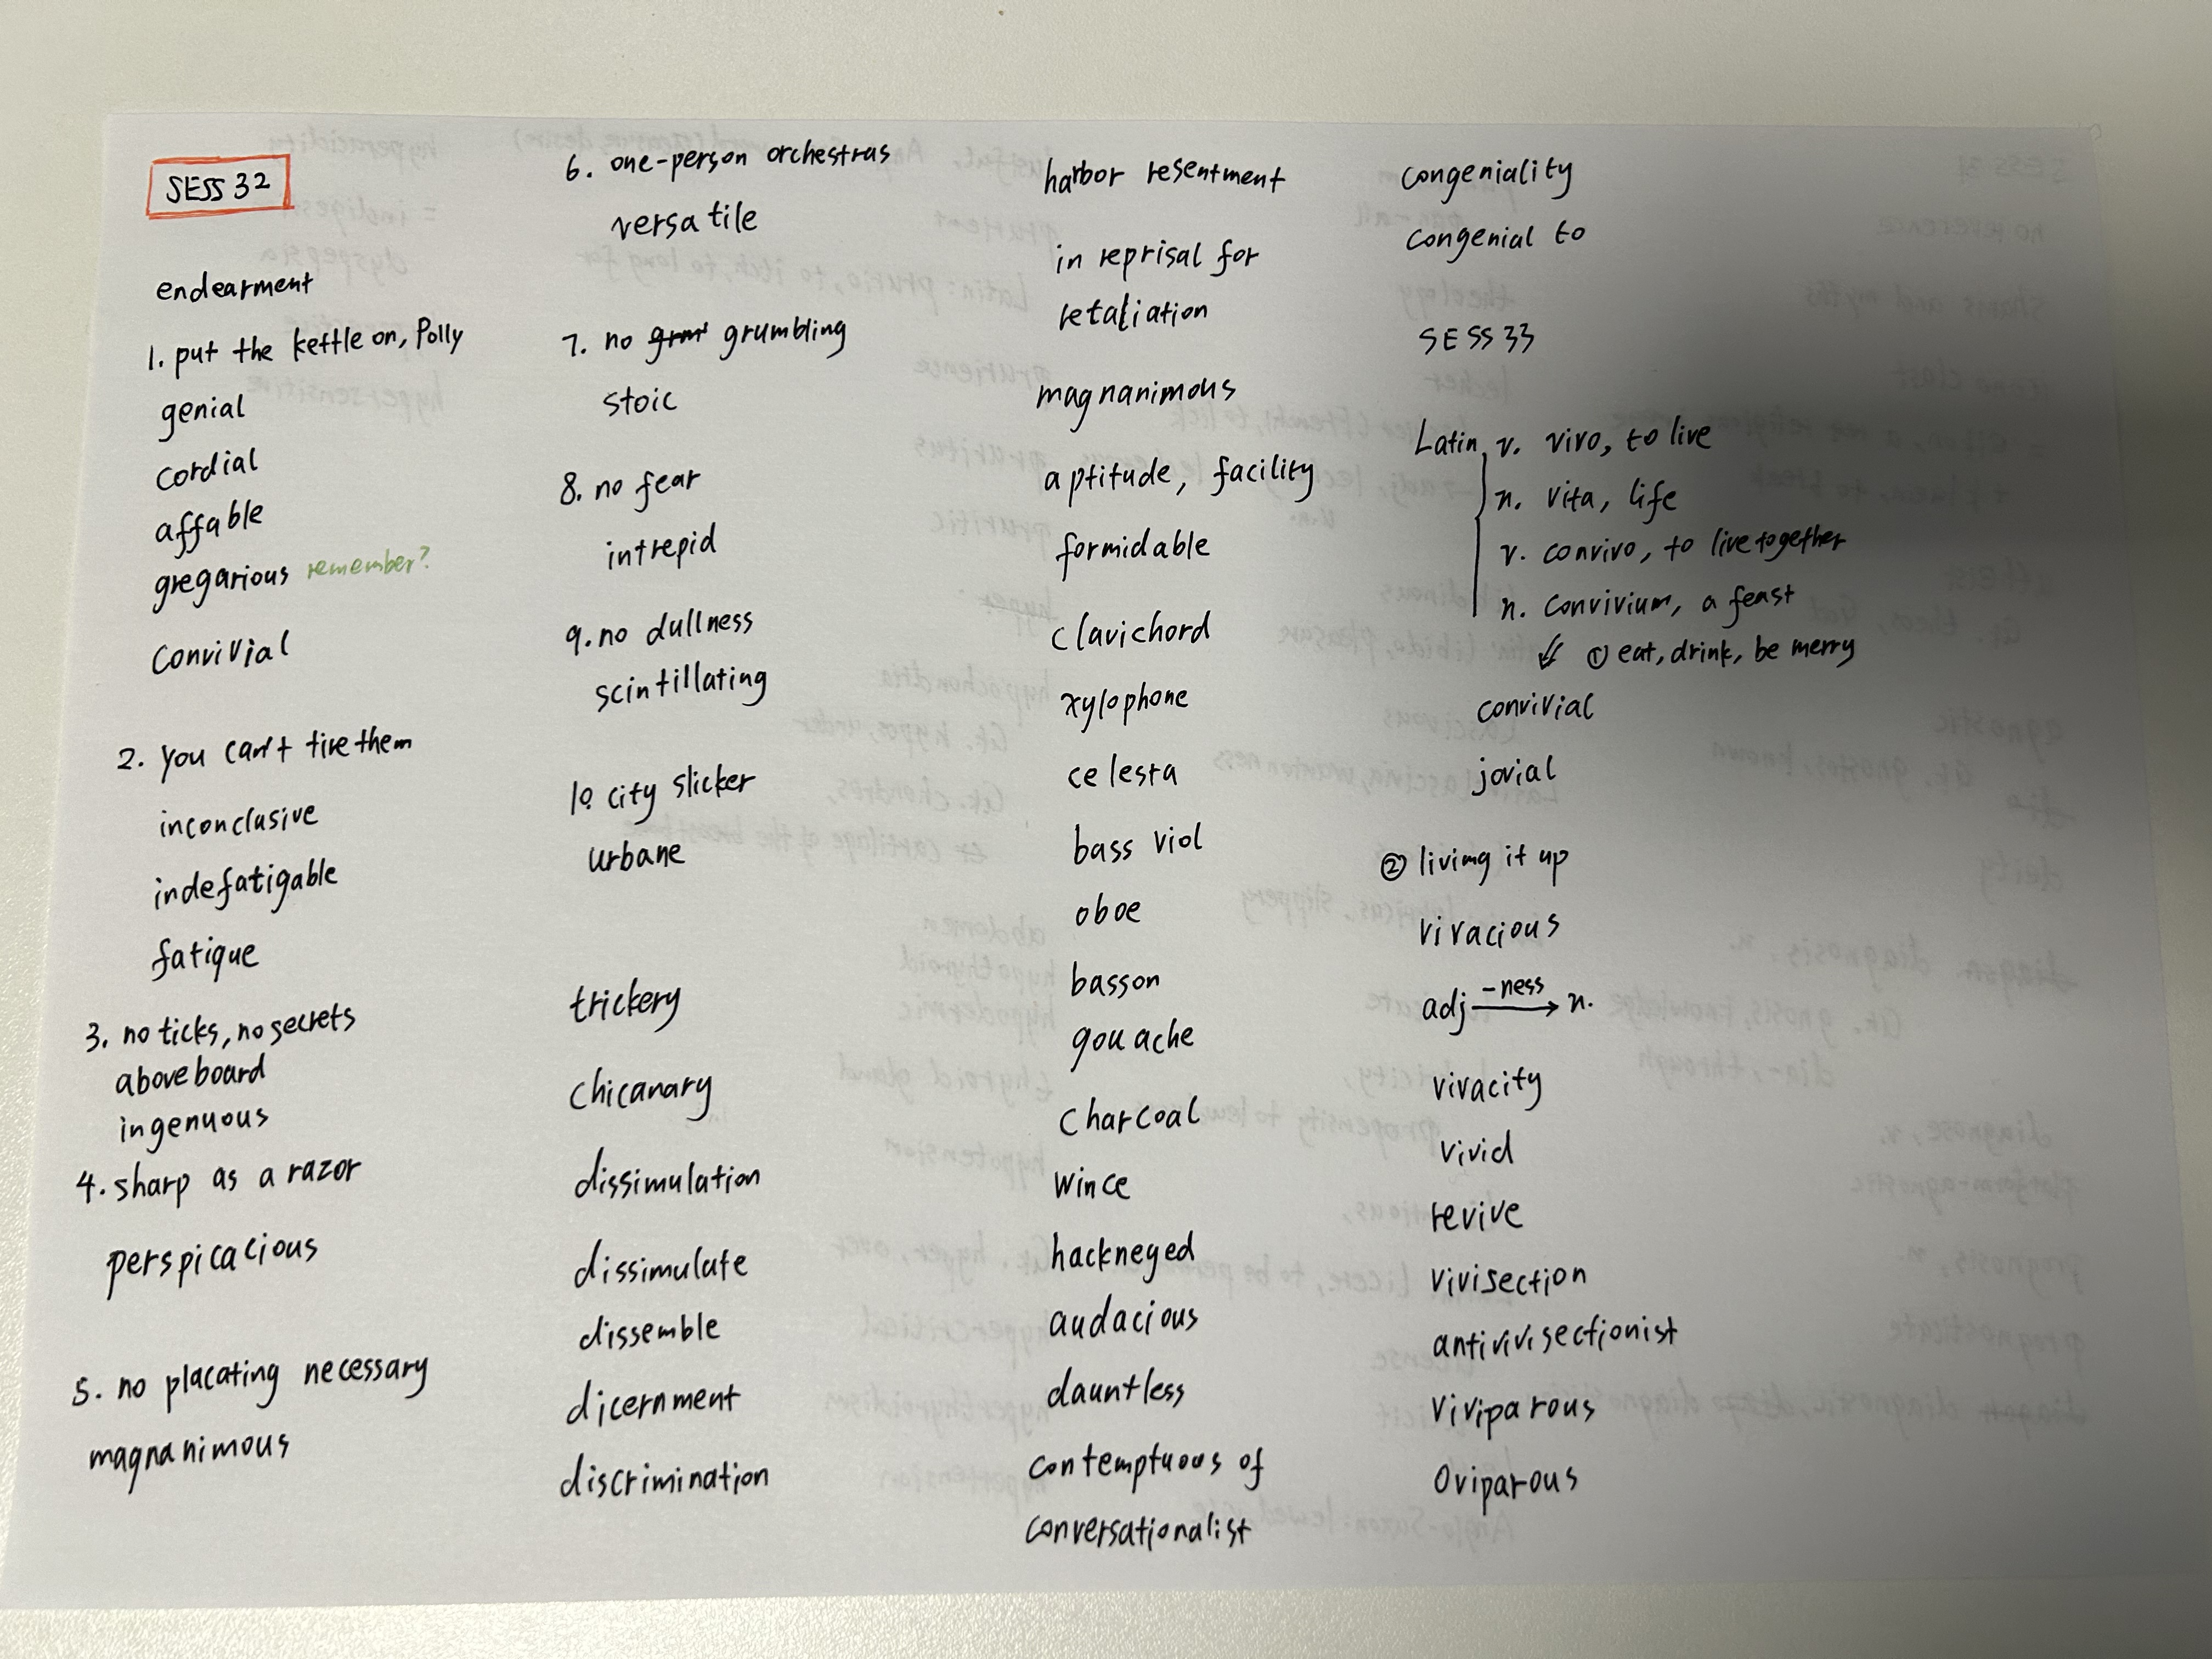 SESS 32
endearment
1. put the kettle on, Polly
genial
cordial
affable
gregarious remember?
convivial
2. you can't tire them
inconclusive
indefatigable
fatique
3. no ticks, no secrets
aboveboard
ingenuous
4. sharp as a razor
perspicacious
5. no placating necessary
magnanimous
6. one-person orchestras
versatile
7. no grumbling
stoic
8. no fear
intrepid
9. no dullness
scintillating
10. city slicker
urbane
trickery
chicanary
dissimulation
dissimulate
dissemble
dicernment
discrimination
harbor resentment
in reprisal for
retaliation
magnanimous
aptitude, facility
formidable
clavichord
xylophone
celesta
bass viol
oboe
basson
gouache
charcoal
wince
hackneyed
audacious
dauntless
contemptuous of
conversationalist
congeniality
congenial to
SESS 33
Latin v. vivo, to live
n. vita, life
v. convivo, to live together
n. convivium, a feast
① eat, drink, be merry
convivial
jovial
② living it up
vivacious
adj -ness → n.
vivacity
vivid
revive
vivisection
antivivisectionist
viviparous
oviparous